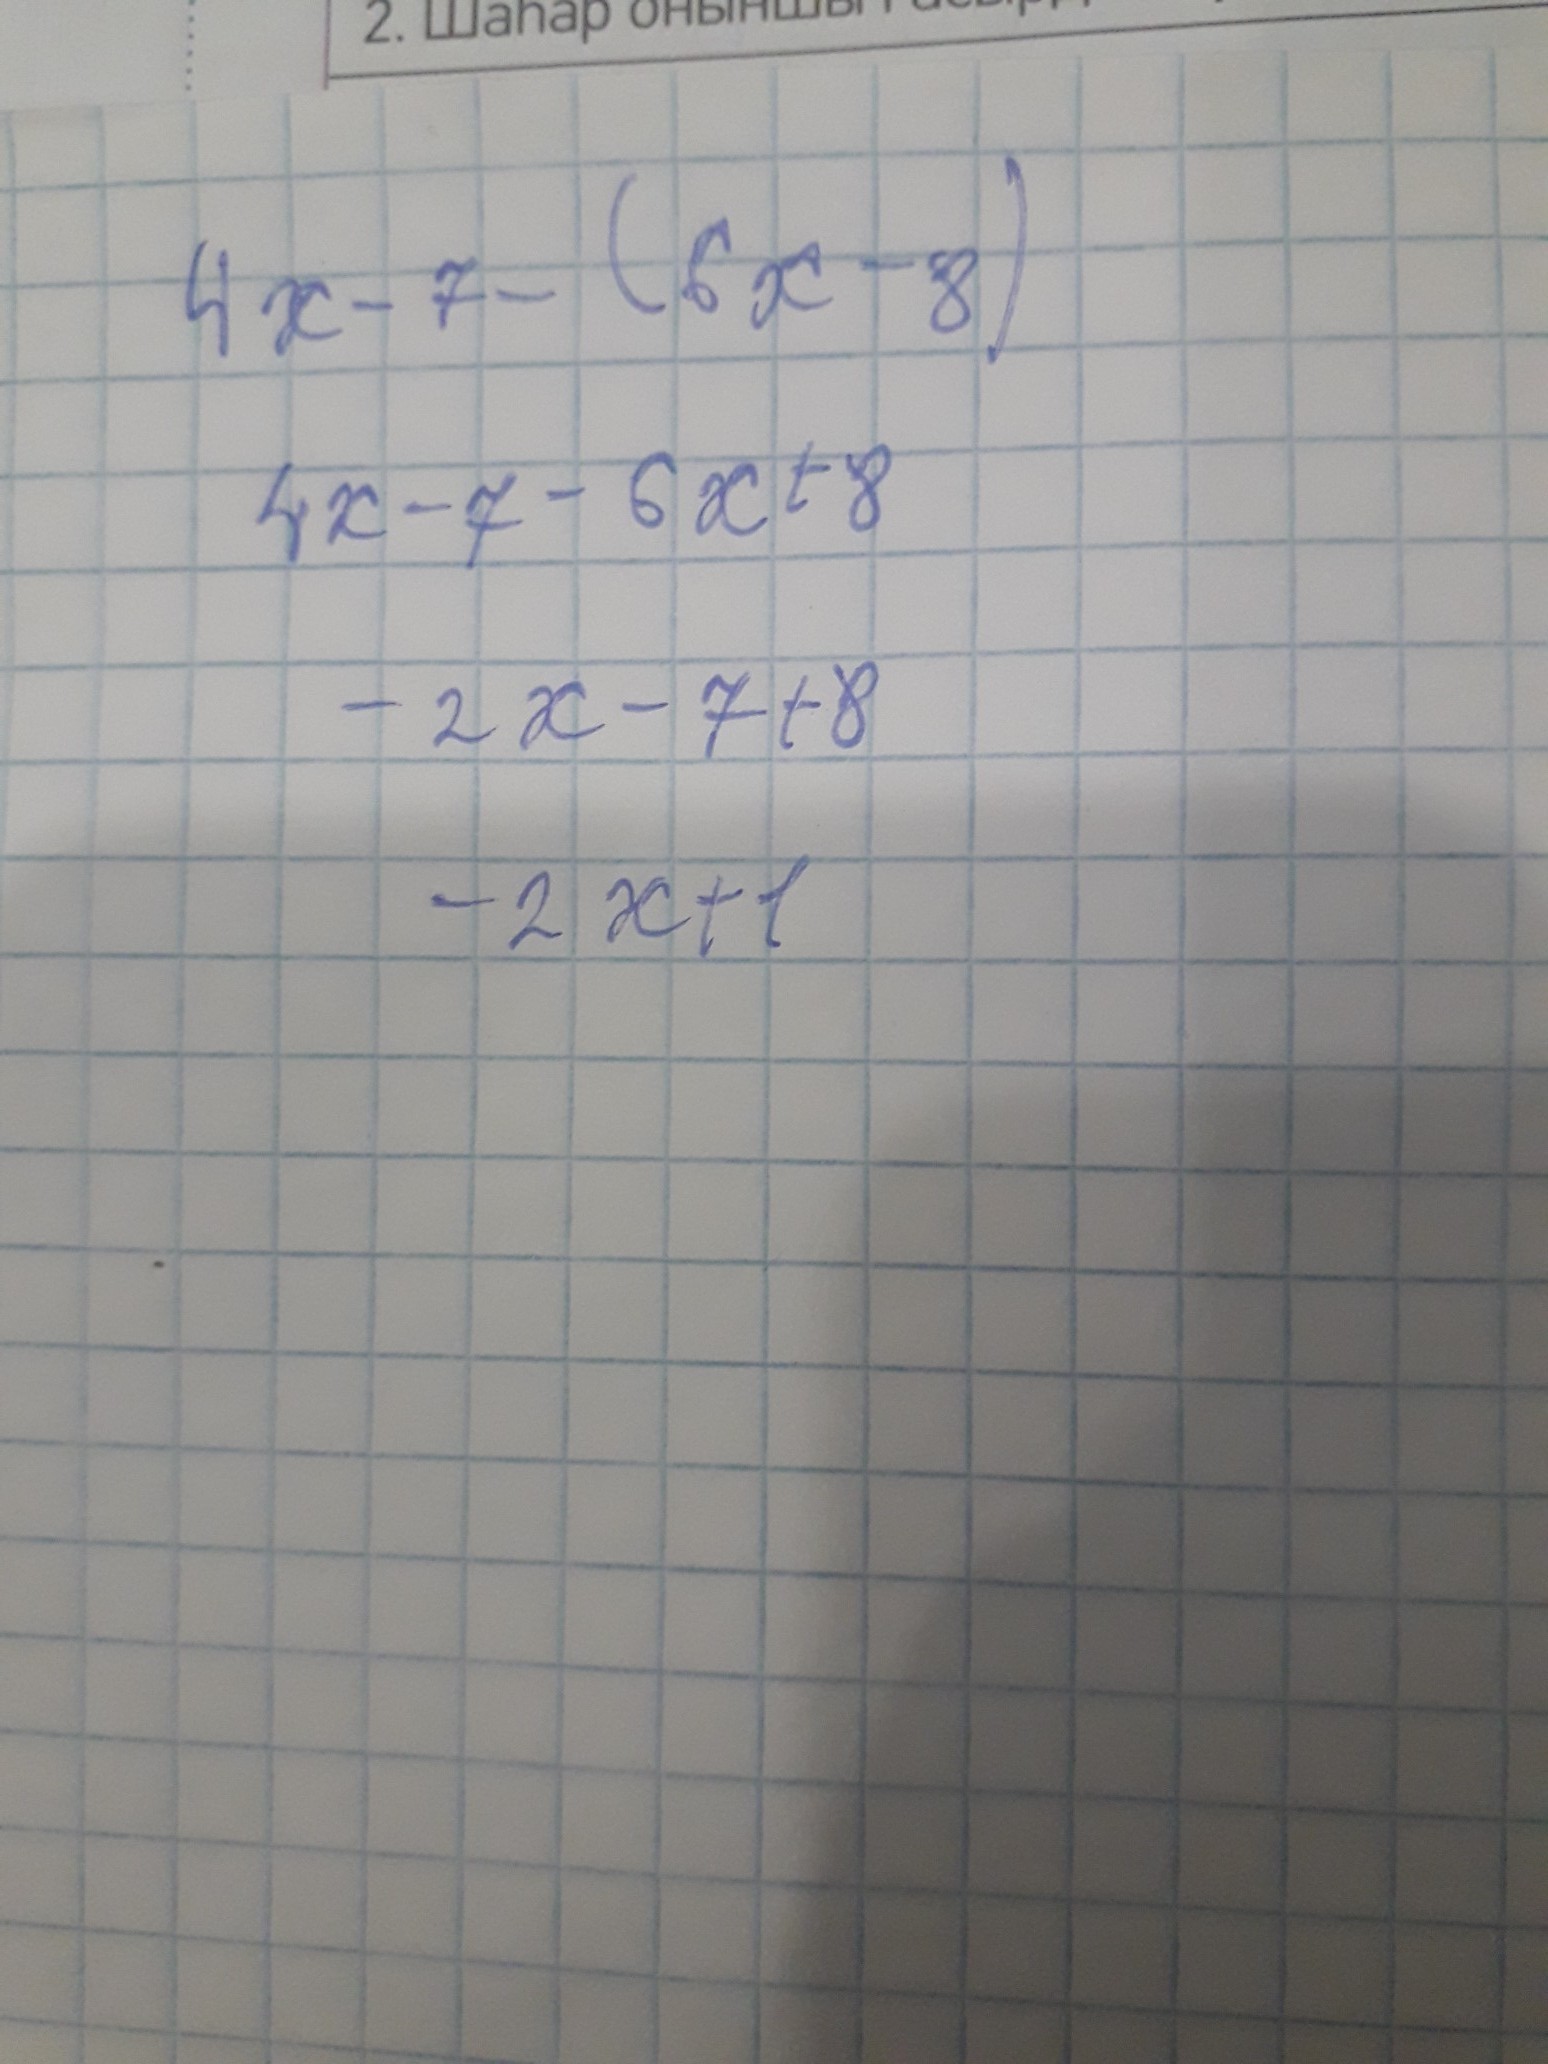 2. Шаһар оныншы ғасырд
4x - 7 - (6x - 8)
4x - 7 - 6x + 8
- 2x - 7 + 8
- 2x + 1